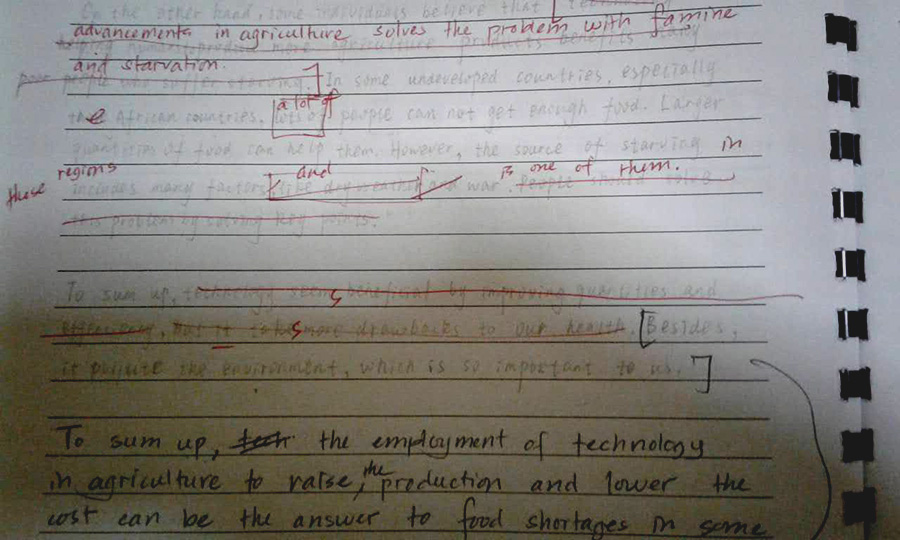 On the other hand, some individuals believe that [ techno
advancements in agriculture solves the problem with famine
helping human produce more agriculture products benefits many
and starvation.
poor people who suffer starving. ] In some undeveloped countries, especially
the African countries, a lot of [lots of] people can not get enough food. Larger
quantities of food can help them. However, the source of starving in
these regions and is one of them.
includes many factors like dry weather and war. People should solve
this problem by solving key points.
To sum up, technology seems beneficial by improving quantities and
efficiency, but it takes more drawbacks to our health. [Besides,
it pollute the environment, which is so important to us. ]
To sum up, the employment of technology
in agriculture to raise, the production and lower the
cost can be the answer to food shortages in some